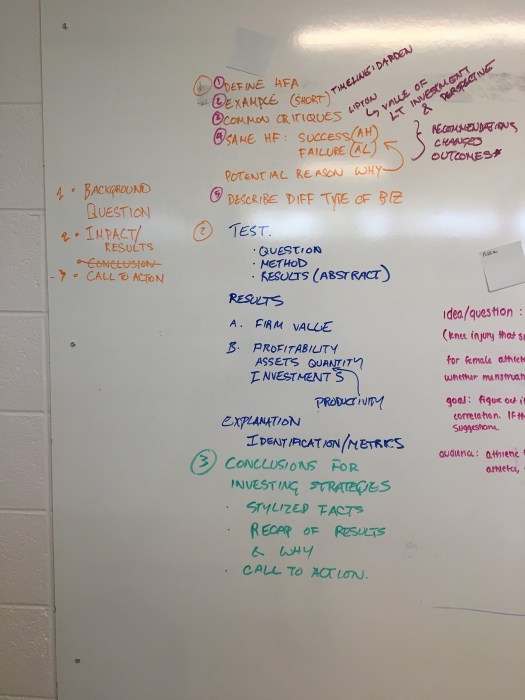 ① ① DEFINE HFA
② EXAMPLE (SHORT) TIMELINE: DARDEN
③ COMMON CRITIQUES LIPTON ↳ VALUE OF
LT INVESTMENT
& PERSPECTIVE
④ SAME HF: SUCCESS (AH)
FAILURE (AL)
RECOMMENDATIONS
CHANGED
OUTCOMES*
POTENTIAL REASON WHY
⑤ DESCRIBE DIFF TYPE OF BIZ
1 • BACKGROUND
QUESTION
2 • IMPACT/
RESULTS
• CONCLUSION
3 • CALL TO ACTION
② TEST.
· QUESTION
· METHOD
· RESULTS (ABSTRACT)
RESULTS
A. FIRM VALUE
B. PROFITABILITY
ASSETS QUANTITY
INVESTMENT'S
PRODUCTIVITY
EXPLANATION
IDENTIFICATION/METRICS
③ CONCLUSIONS FOR
INVESTING STRATEGIES
· STYLIZED FACTS
· RECAP OF RESULTS
& WHY
· CALL TO ACTION.
idea/question:
(knee injury that s
for female athlet
whether menstrua
goal: figure out i
correlation. If th
suggestions
audience: athletic
athletes,